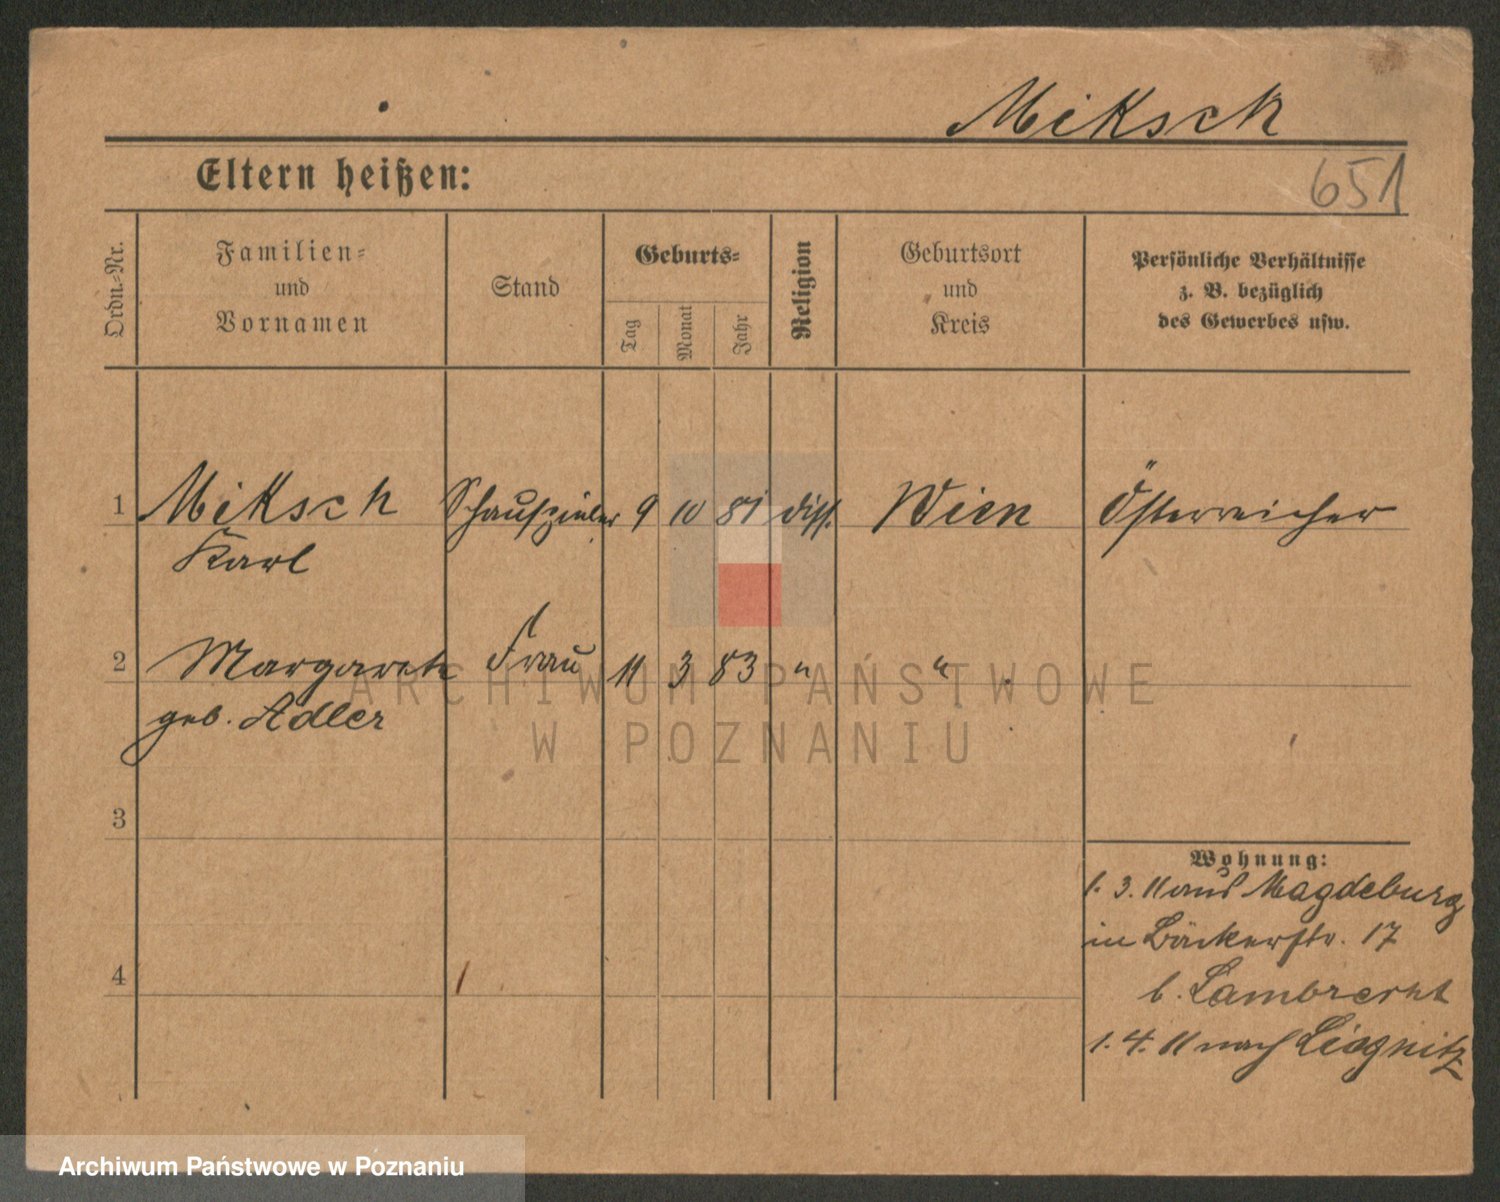 Miksch
Eltern heißen:
651
Ordn.-Nr.
Familien-
und
Vornamen
Stand
Geburts-
Tag
Monat
Jahr
Religion
Geburtsort
und
Kreis
Persönliche Verhältnisse
z. B. bezüglich
des Gewerbes usw.
1 Miksch Schauspieler 9 10 81 diss. Wien Österreicher
Karl
2 Margarete Frau 11 3 83 " "
geb. Adler
3
Wohnung:
1. 3. 11 aus Magdeburg
in Bäckerstr. 17
4
b. Lambrecht
1. 4. 11 nach Liegnitz
ARCHIWUM PAŃSTWOWE
W POZNANIU
Archiwum Państwowe w Poznaniu